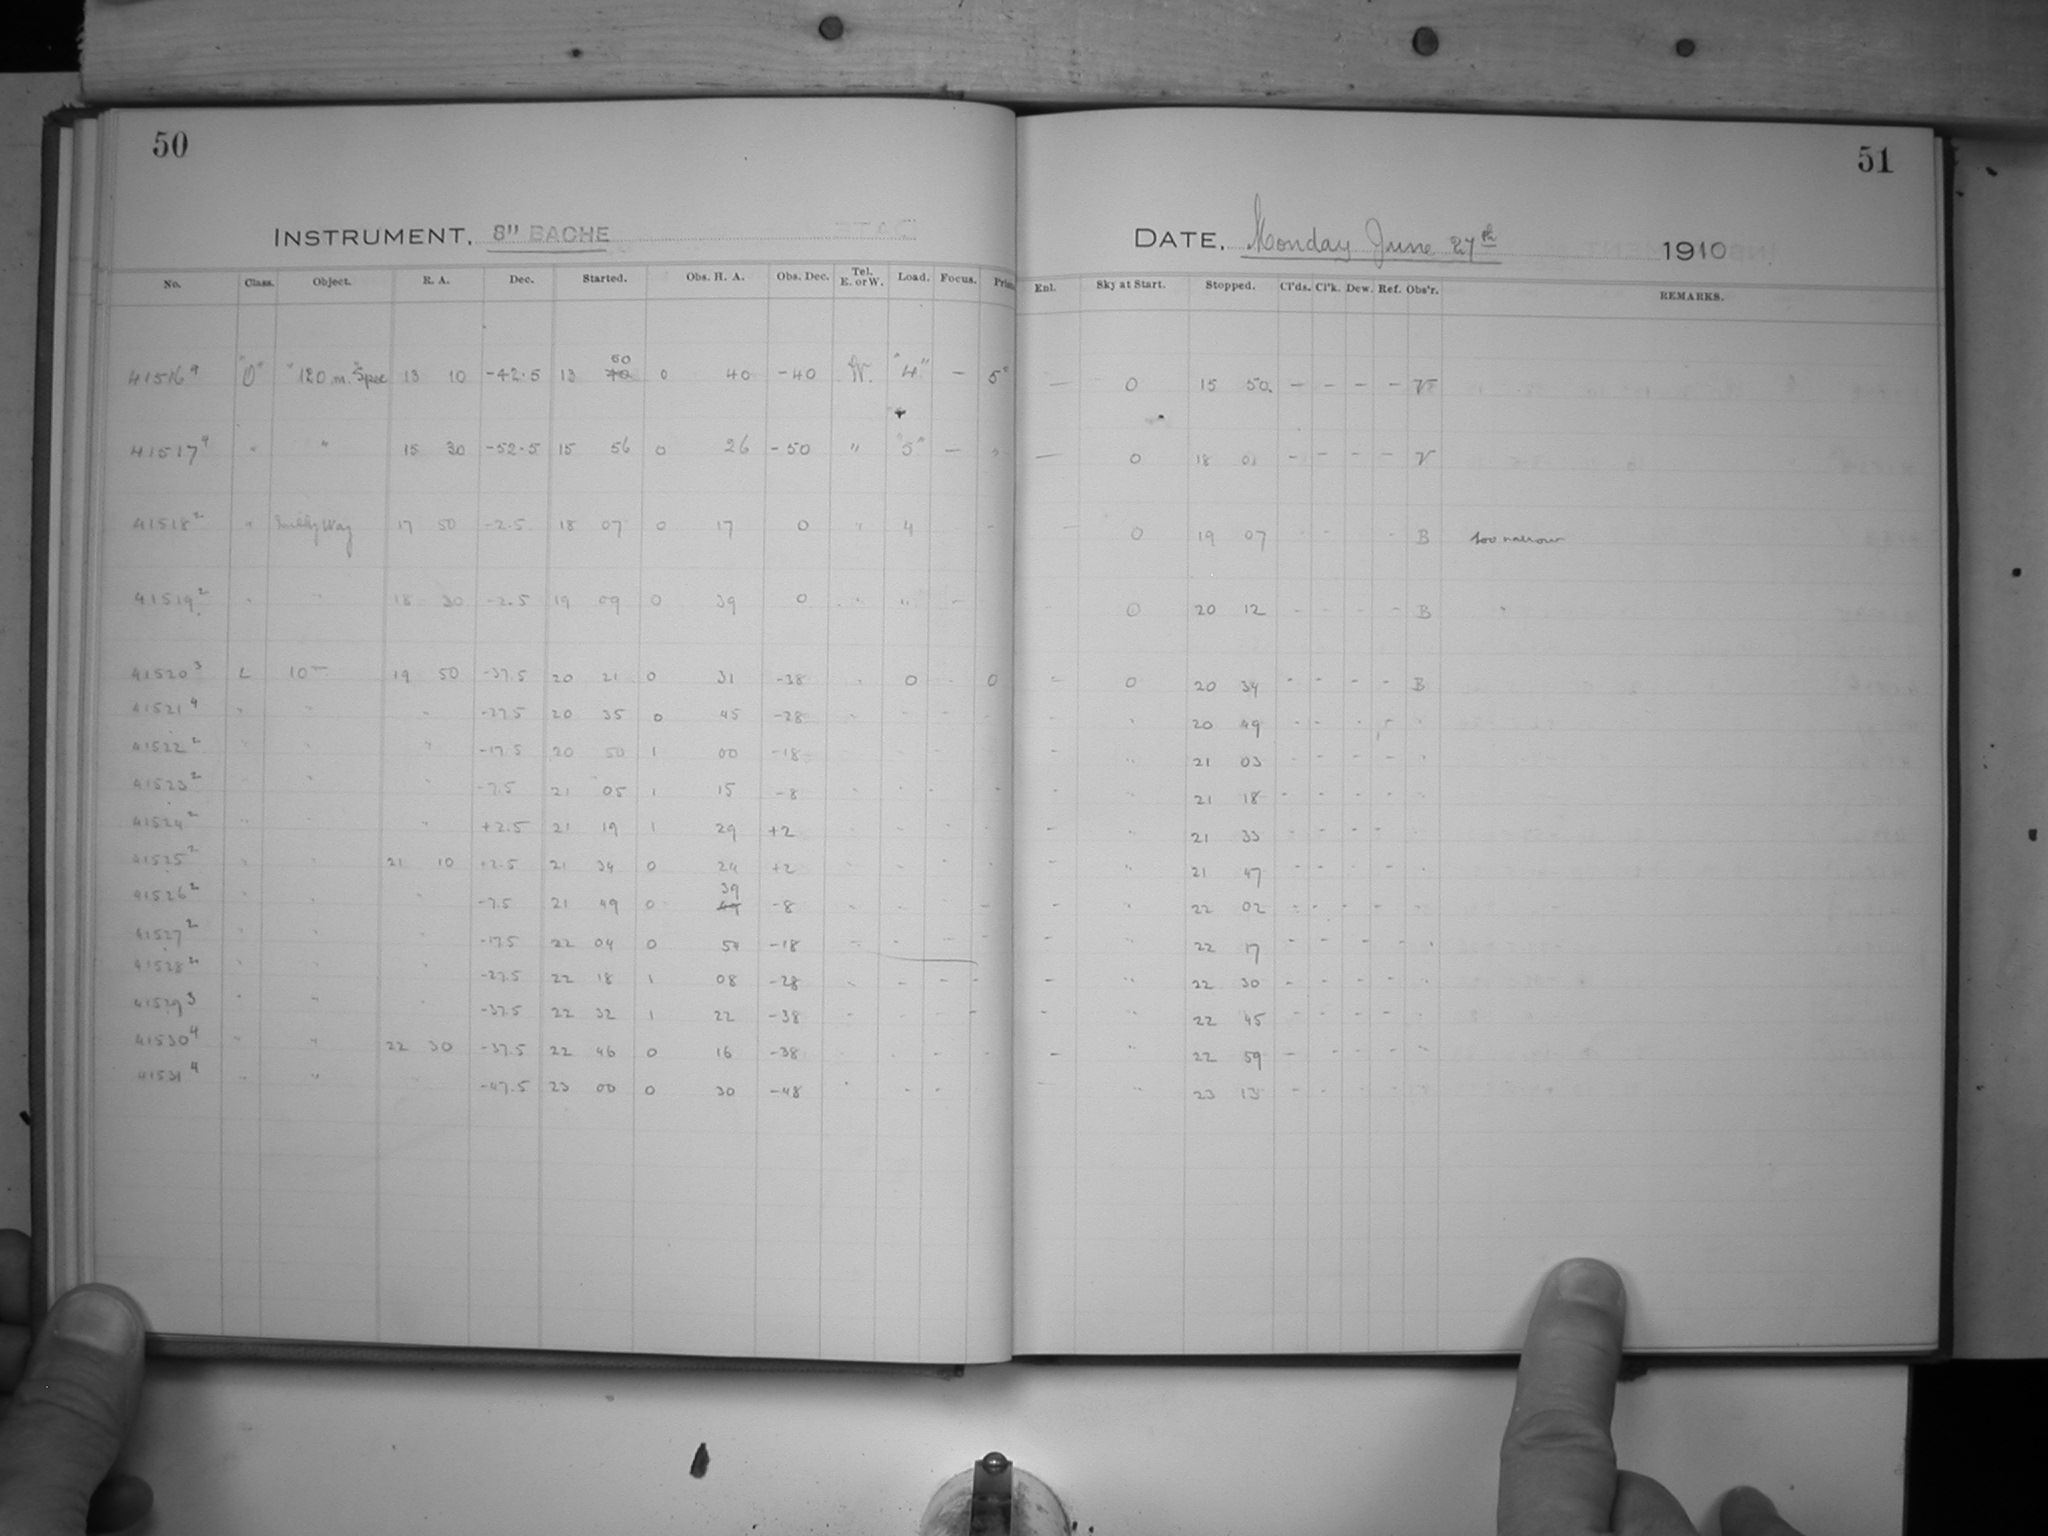 50
INSTRUMENT, 8" BACHE
No. Class. Object. R. A. Dec. Started. Obs. H. A. Obs. Dec. Tel. E. or W. Load. Focus. Prism
41516 "O" "120 m. Spec" 13 10 -42.5 13 50 40 0 40 -40 W. "4" — 5"
41517 " " 15 30 -52.5 15 56 0 26 -50 " "5" — "
41518² " Milky Way 17 50 -2.5 18 07 0 17 0 " 4 -
41519² " " 18 30 -2.5 19 09 0 39 0 " " -
41520³ L 10ᵐ 19 50 -37.5 20 21 0 31 -38 " 0 - 0
41521⁴ " " " -27.5 20 35 0 45 -28
41522² " " " -17.5 20 50 1 00 -18
41523² " " " -7.5 21 05 1 15 -8
41524² " " " +2.5 21 19 1 29 +2
41525² " " 21 10 +2.5 21 34 0 24 +2
41526² " " " -7.5 21 49 0 39 49 -8
41527² " " " -17.5 22 04 0 54 -18
41528² " " " -27.5 22 18 1 08 -28
41529³ " " " -37.5 22 32 1 22 -38
41530⁴ " " 22 30 -37.5 22 46 0 16 -38
41531⁴ " " " -47.5 23 00 0 30 -48
51
DATE, Monday June 27th 1910
Enl. Sky at Start. Stopped. Cl'ds. Cl'k. Dew. Ref. Obs'r. REMARKS.
— 0 15 50 - - - - V
— 0 18 01 - - - - V
- 0 19 07 - - - - B too narrow
- 0 20 12 - - - - B "
- 0 20 34 - - - - B
" 20 49 - - - - "
- " 21 03 - - - - "
" 21 18 - - - - "
- " 21 33 - - - - "
- " 21 47 - - - - "
- " 22 02 - - - - "
- " 22 17 - - - - "
- " 22 30 - - - - "
- " 22 45 - - - - "
- " 22 59 - - - - "
- " 23 13 - - - - "